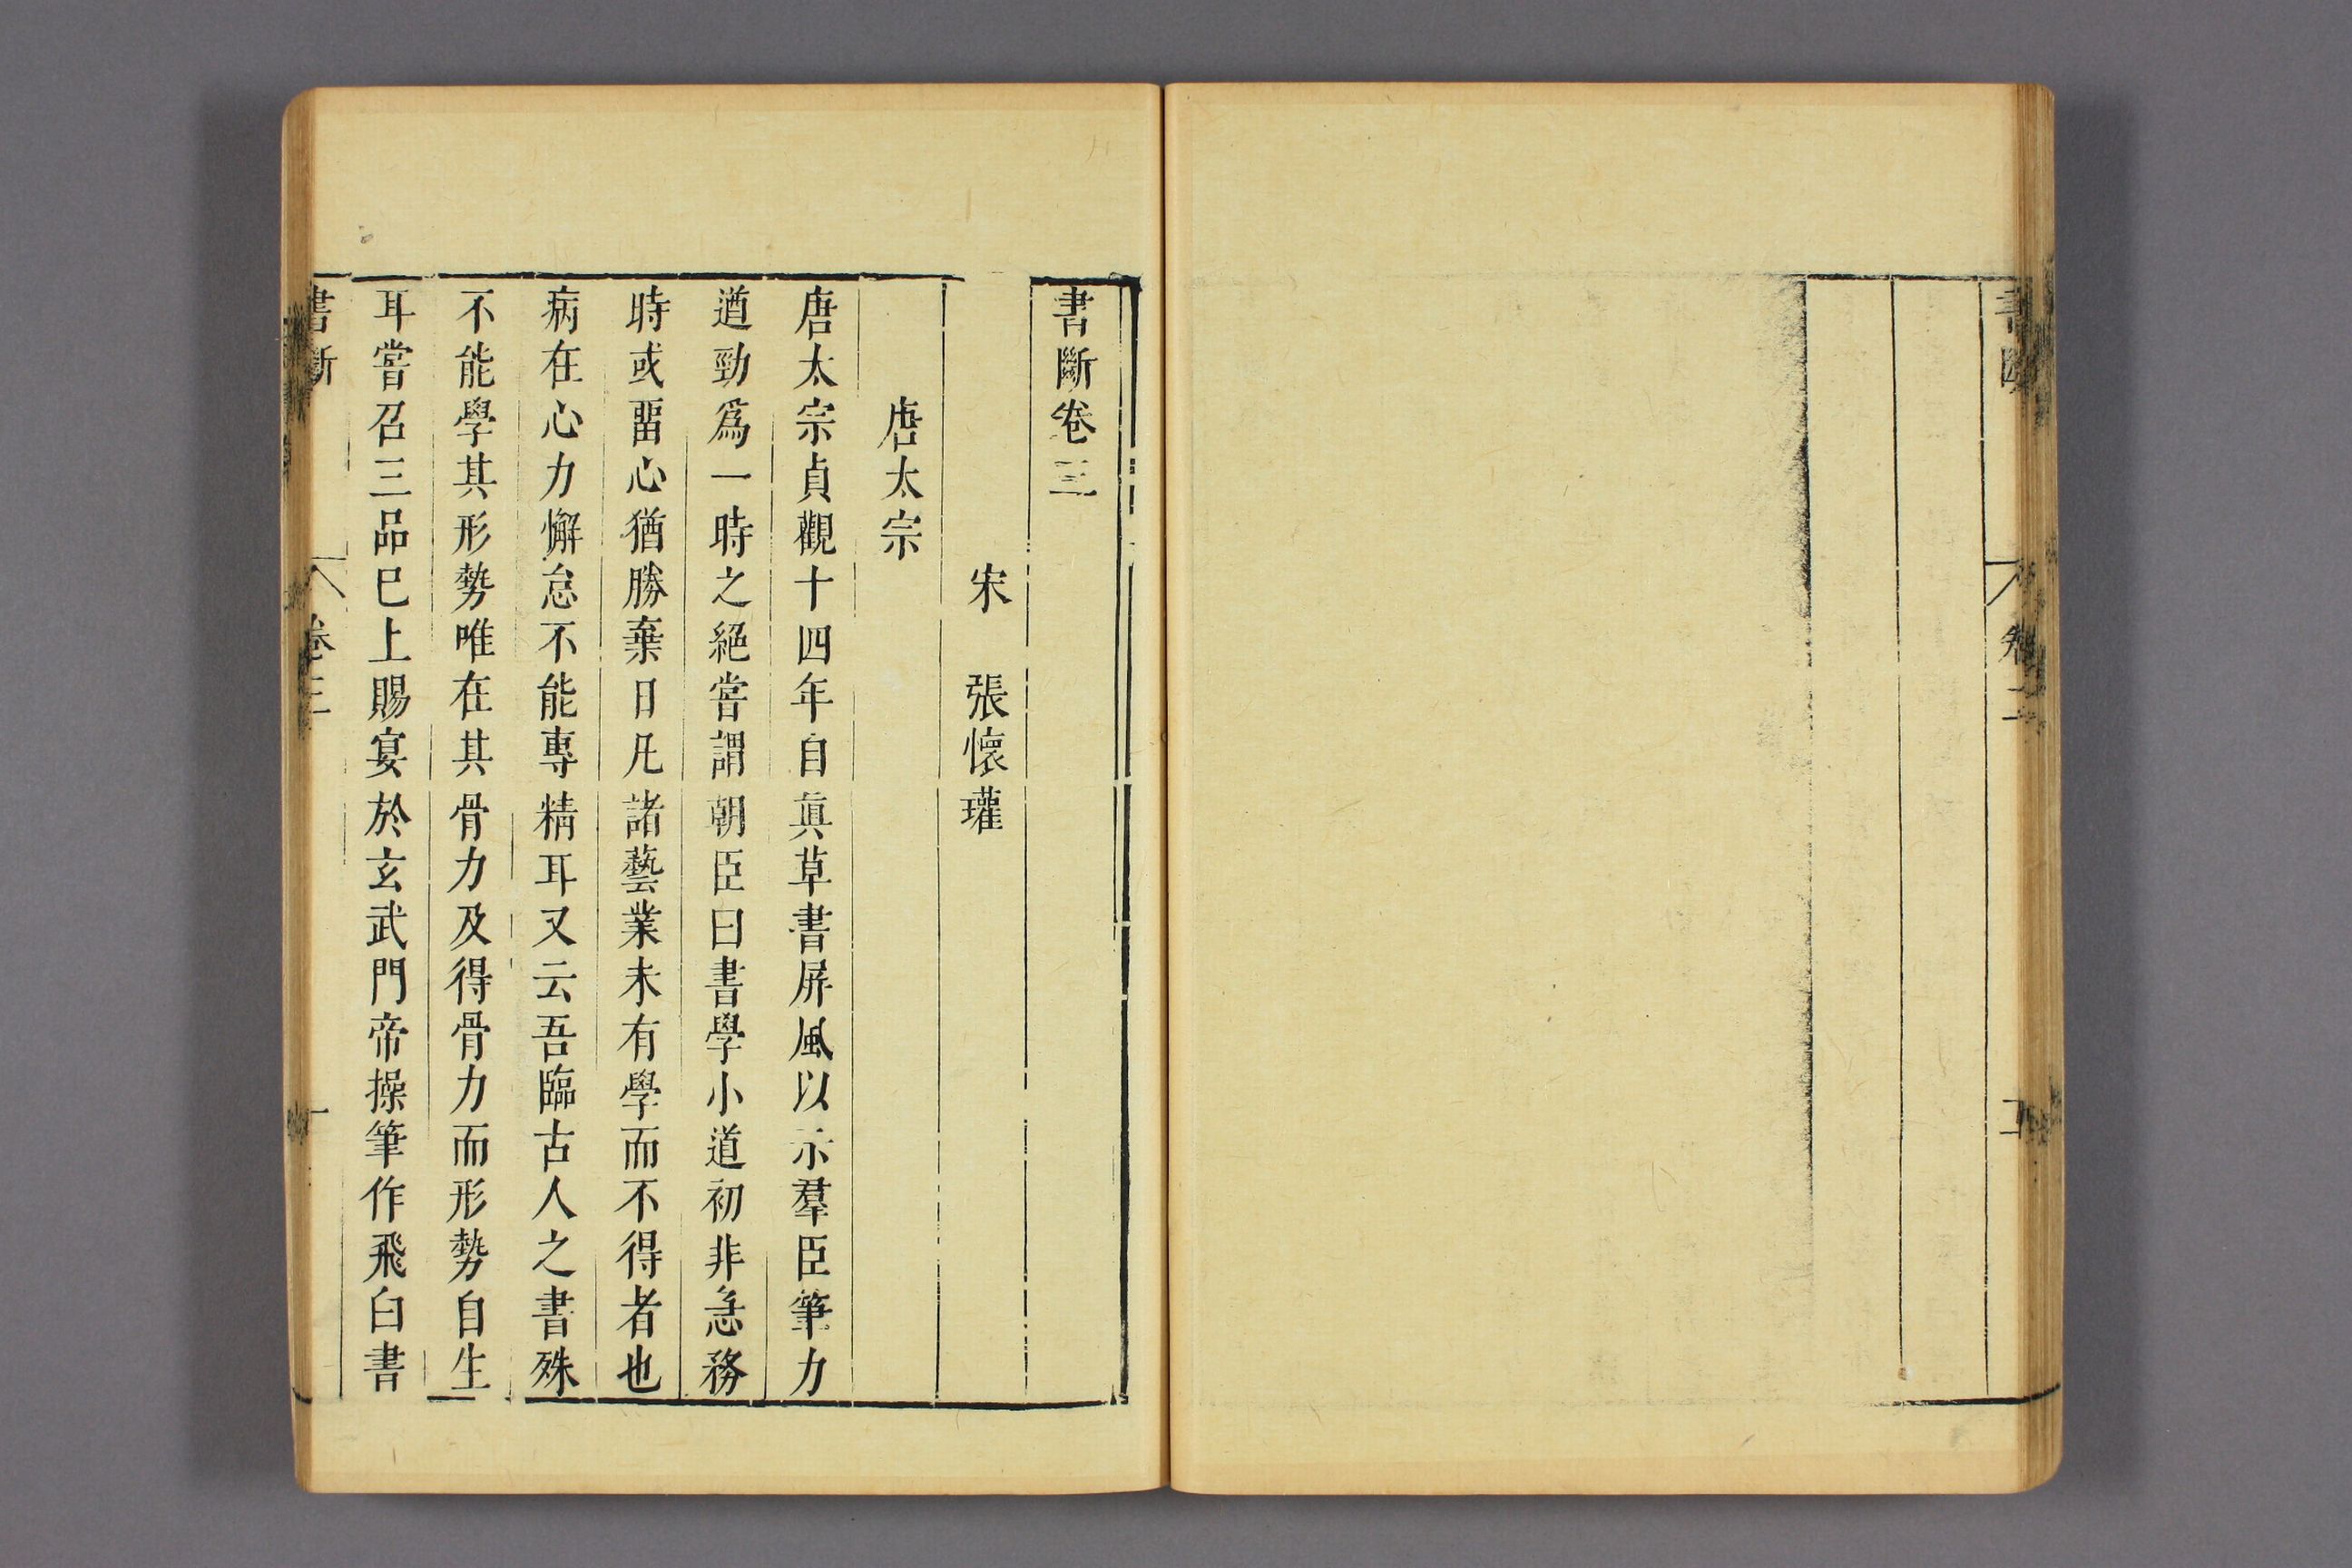 書斷卷三
宋 張懷瓘
唐太宗
唐太宗貞觀十四年自眞草書屏風以示羣臣筆力
遒勁爲一時之絕嘗謂朝臣曰書學小道初非急務
時或畱心猶勝棄日凡諸藝業未有學而不得者也
病在心力懈怠不能專精耳又云吾臨古人之書殊
不能學其形勢唯在其骨力及得骨力而形勢自生
耳嘗召三品已上賜宴於玄武門帝操筆作飛白書
書斷
卷三
一